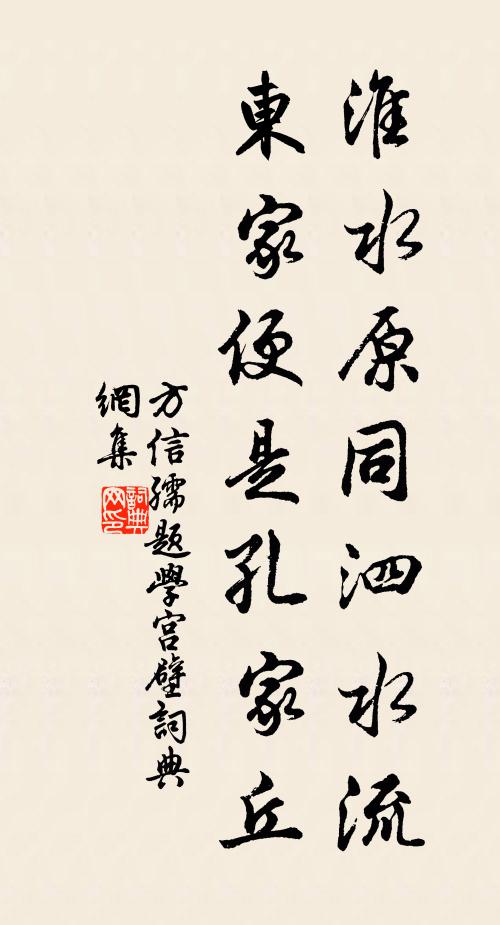 淮水原同泗水流
東家便是孔家丘
方信孺題學宮壁詞典
網集
詞典
网印